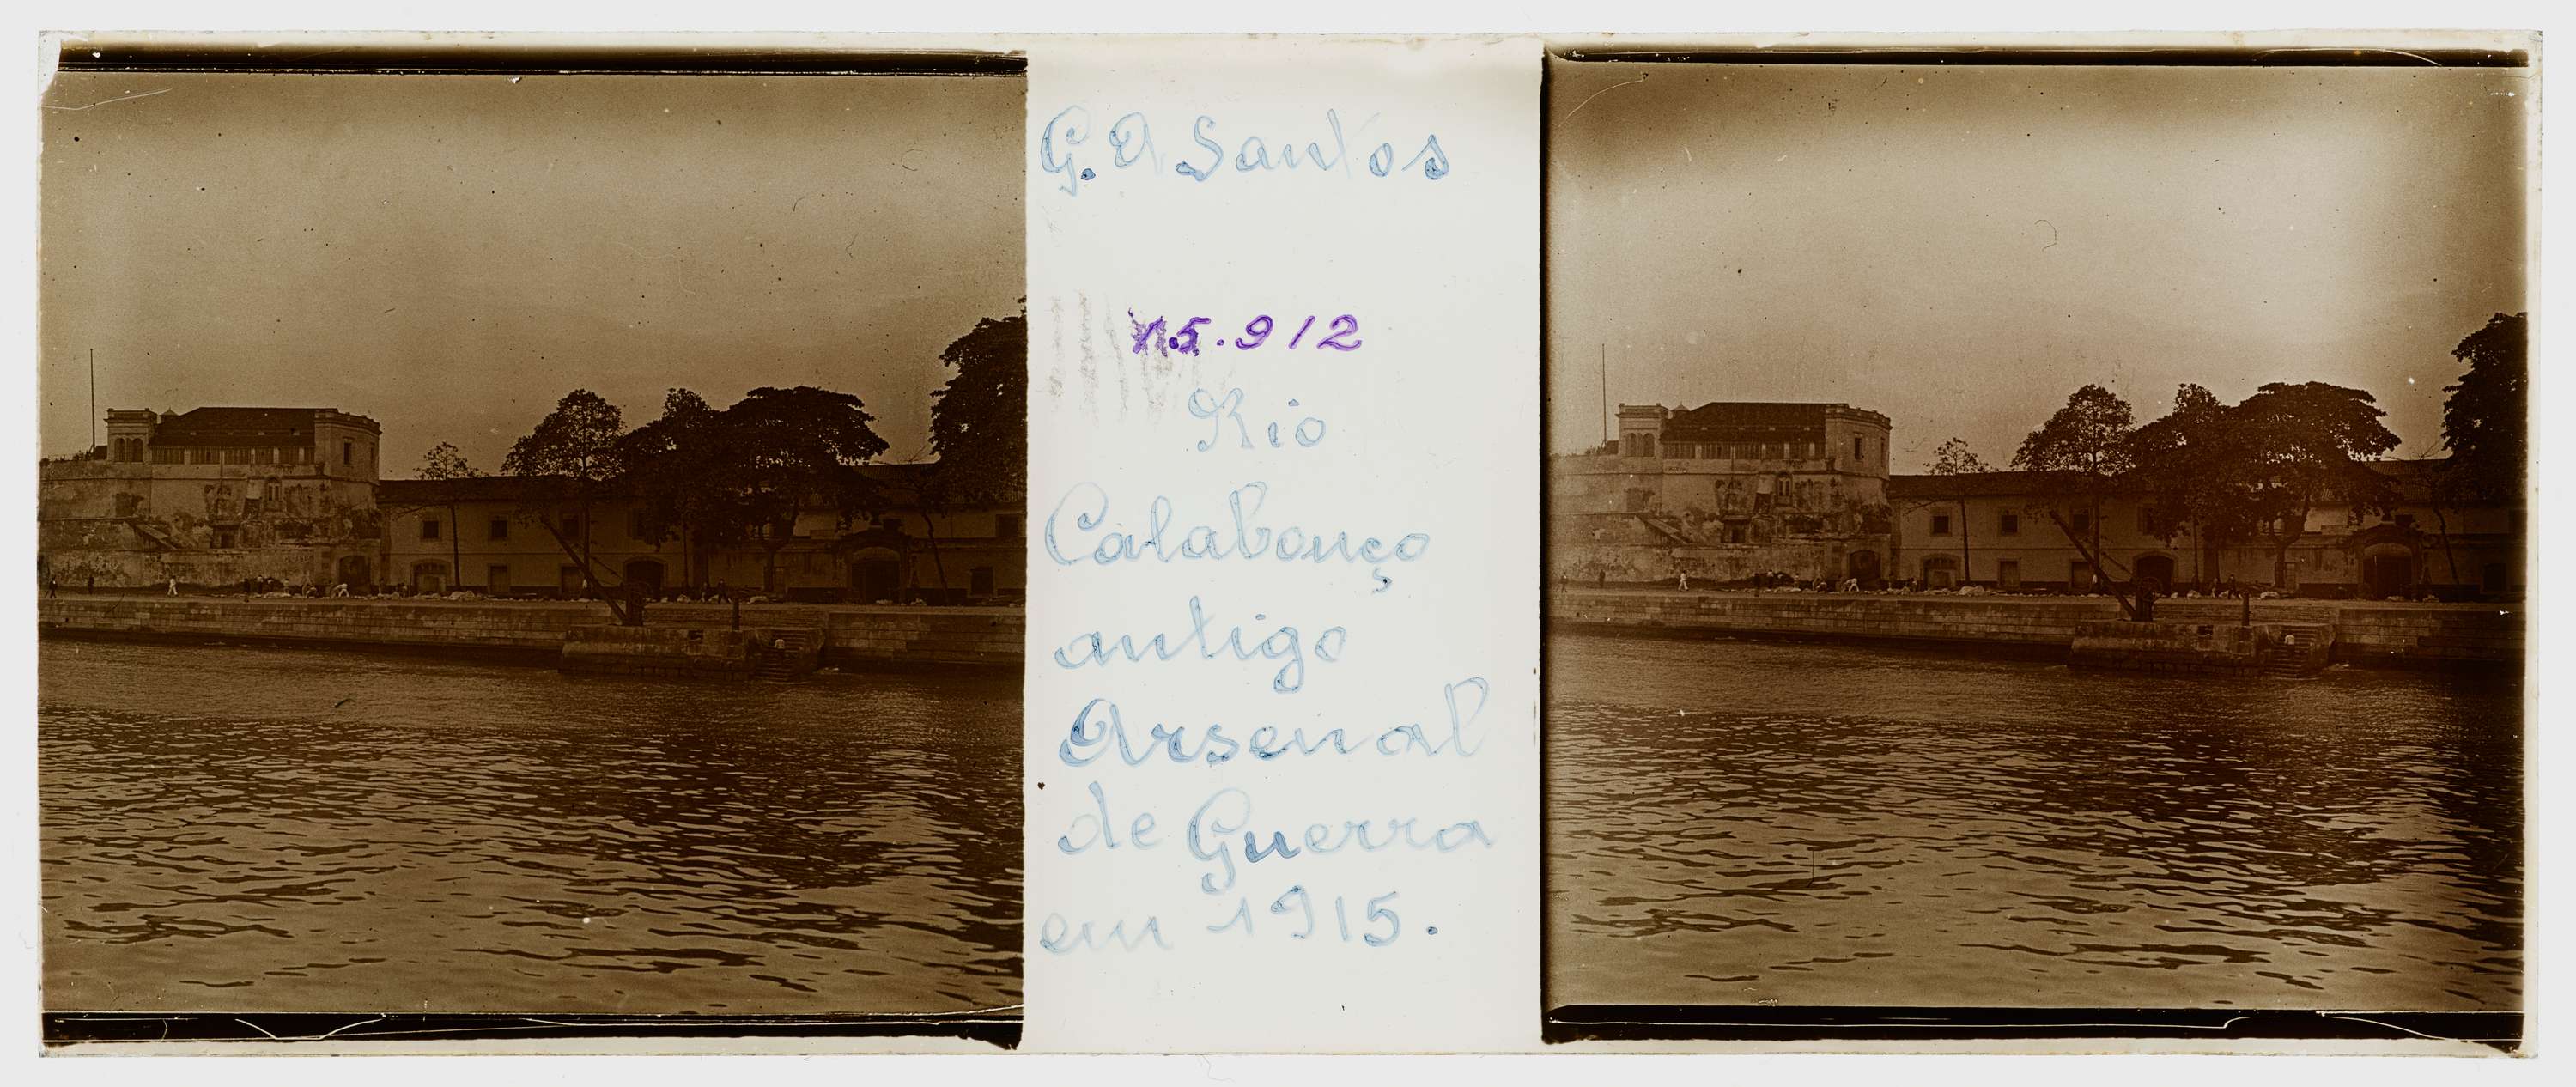 G. A Santos
15.912
Rio
Calabouço
antigo
Arsenal
de Guerra
em 1915.